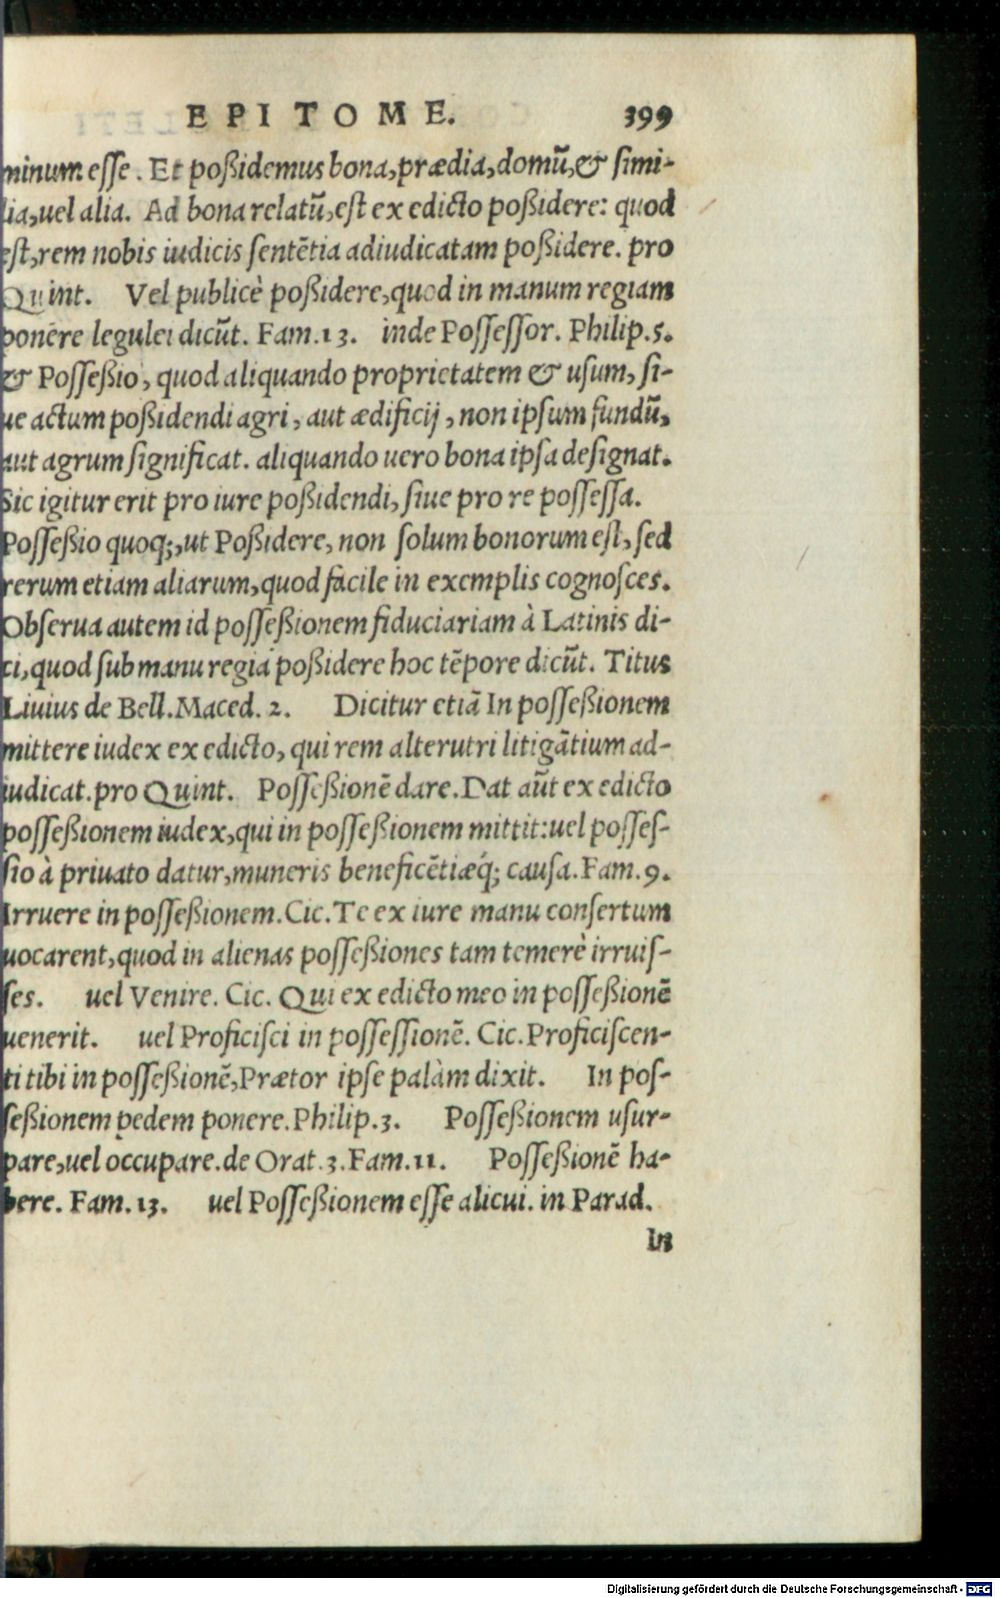 EPITOME. 399
minum esse. Et poßidemus bona, prædia, domũ, & simi-
lia, uel alia. Ad bona relatũ, est ex edicto poßidere: quod
est, rem nobis iudicis sentẽtia adiudicatam poßidere. pro
Quint. Vel publicè poßidere, quod in manum regiam
ponere legulei dicũt. Fam. 13. inde Possessor. Philip. 5.
& Posseßio, quod aliquando proprietatem & usum, si-
ue actum poßidendi agri, aut ædificij, non ipsum fundũ,
aut agrum significat. aliquando uero bona ipsa designat.
Sic igitur erit pro iure poßidendi, siue pro re possessa.
Posseßio quoq;, ut Poßidere, non solum bonorum est, sed
rerum etiam aliarum, quod facile in exemplis cognosces.
Obserua autem id posseßionem fiduciariam à Latinis di-
ci, quod sub manu regia poßidere hoc tẽpore dicũt. Titus
Liuius de Bell. Maced. 2. Dicitur etiã In posseßionem
mittere iudex ex edicto, qui rem alterutri litigãtium ad-
iudicat. pro Quint. Posseßionẽ dare. Dat aũt ex edicto
posseßionem iudex, qui in posseßionem mittit: uel posses-
sio à priuato datur, muneris beneficẽtiæq́; causa. Fam. 9.
Irruere in posseßionem. Cic. Te ex iure manu consertum
uocarent, quod in alienas posseßiones tam temerè irruis-
ses. uel Venire. Cic. Qui ex edicto meo in posseßionẽ
uenerit. uel Proficisci in possessionẽ. Cic. Proficiscen-
ti tibi in posseßionẽ, Prætor ipse palàm dixit. In pos-
seßionem pedem ponere. Philip. 3. Posseßionem usur-
pare, uel occupare. de Orat. 3. Fam. 11. Posseßionẽ ha-
bere. Fam. 13. uel Posseßionem esse alicui. in Parad.
In
Digitalisierung gefördert durch die Deutsche Forschungsgemeinschaft - DFG